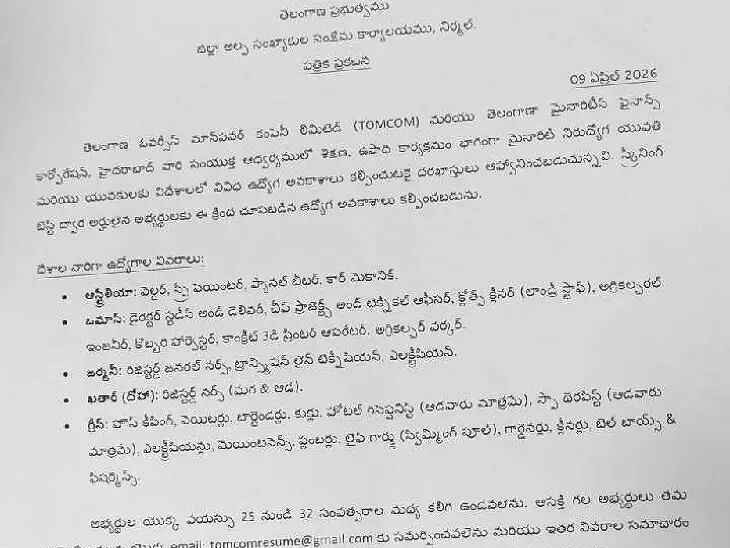 తెలంగాణ ప్రభుత్వము
జిల్లా అల్ప సంఖ్యాకుల సంక్షేమ కార్యాలయము, నిర్మల్.
పత్రిక ప్రకటన
09 ఏప్రిల్ 2026
తెలంగాణ ఓవర్సీస్ మాన్‌పవర్ కంపెనీ లిమిటెడ్ (TOMCOM) మరియు తెలంగాణా మైనారిటీస్ ఫైనాన్స్
కార్పోరేషన్, హైదరాబాద్ వారి సంయుక్త ఆధ్వర్యములో శిక్షణ, ఉపాధి కార్యక్రమం భాగంగా మైనారిటీ నిరుద్యోగ యువతి
మరియు యువకులకు విదేశాలలో వివిధ ఉద్యోగ అవకాశాలు కల్పించుటకై దరఖాస్తులు ఆహ్వానించబడుచున్నవి. స్క్రీనింగ్
టెస్ట్ ద్వారా అర్హులైన అభ్యర్థులకు ఈ క్రింద చూపబడిన ఉద్యోగ అవకాశాలు కల్పించబడును.
దేశాల వారిగా ఉద్యోగాల వివరాలు:
• ఆస్ట్రేలియా: వెల్డర్, స్ప్రే పెయింటర్, ప్యానల్ బీటర్, కార్ మెకానిక్.
• ఒమాన్: డైరెక్టర్ స్టడీస్ అండ్ డెలివరి, చీఫ్ ప్రాజెక్ట్స్ అండ్ టెక్నికల్ ఆఫీసర్, క్లోత్స్ క్లీనర్ (లాండ్రీ స్టాఫ్), అగ్రికల్చరల్
ఇంజనీర్, కొబ్బరి హార్వెస్టర్, కాంక్రీట్ 3డి ప్రింటర్ ఆపరేటర్, అగ్రికల్చర్ వర్కర్.
• జర్మనీ: రిజిస్టర్డ్ జనరల్ నర్స్, ట్రాన్స్మిషన్ లైన్ టెక్నీషియన్, ఎలక్ట్రీషియన్.
• ఖతార్ (దోహా): రిజిస్టర్డ్ నర్స్ (మగ & ఆడ).
• గ్రీస్: హౌస్ కీపింగ్, వెయిటర్లు, బార్టెండర్లు, కుక్‌లు, హోటల్ రిసెప్షనిస్ట్ (ఆడవారు మాత్రమే), స్పా థెరపిస్ట్ (ఆడవారు
మాత్రమే), ఎలక్ట్రీషియన్లు, మెయింటనెన్స్, ప్లంబర్లు, లైఫ్ గార్డ్లు (స్విమ్మింగ్ పూల్), గార్డెనర్లు, క్లీనర్లు, బెల్ బాయ్స్ &
ఫిషర్మెన్స్.
అభ్యర్థుల యొక్క వయస్సు 25 నుండి 32 సంవత్సరాల మధ్య కలిగి ఉండవలెను. ఆసక్తి గల అభ్యర్థులు తమ
email: tomcomresume@gmail.com కు సమర్పించవలెను మరియు ఇతర వివరాల సమాచారం